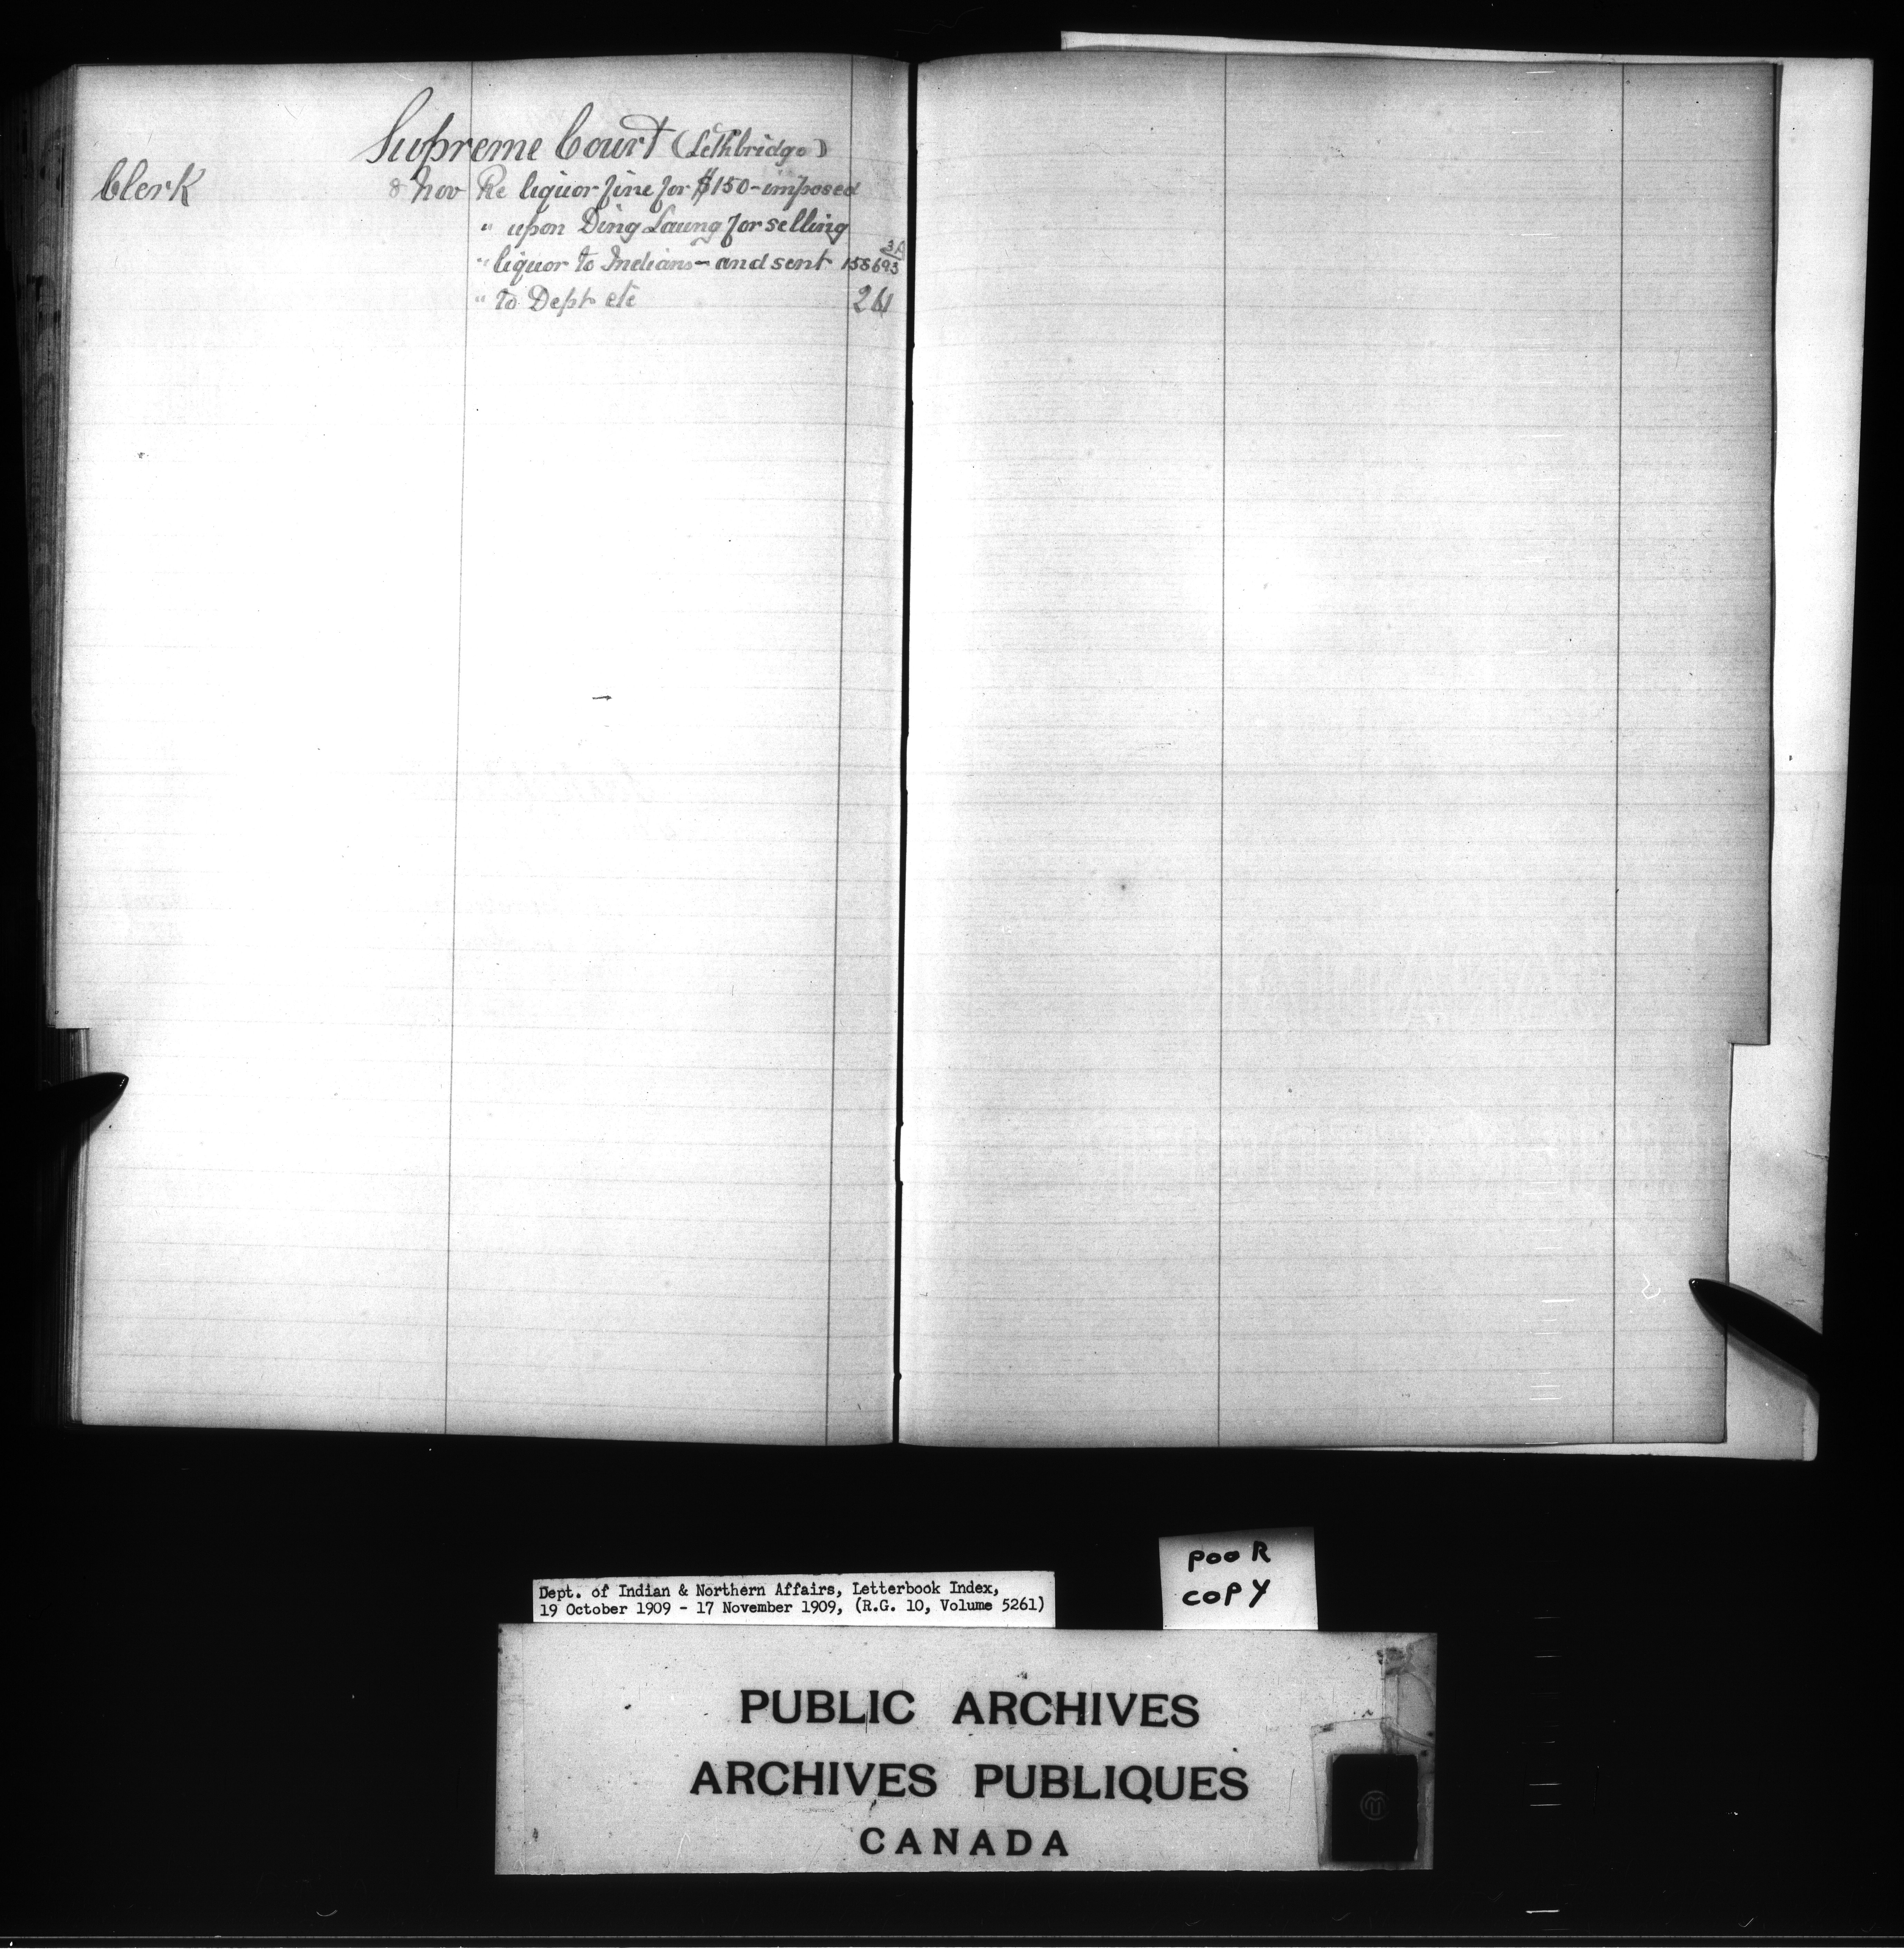 Supreme Court (Lethbridge)
Clerk 8 Nov Re liquor fine for $150 - imposed
" upon Ding Laung for selling
3A
" liquor to Indians - and sent 158693
" to Dept etc 261
Dept. of Indian & Northern Affairs, Letterbook Index,
19 October 1909 - 17 November 1909, (R.G. 10, Volume 5261)
POOR
COPY
PUBLIC ARCHIVES
ARCHIVES PUBLIQUES
CANADA